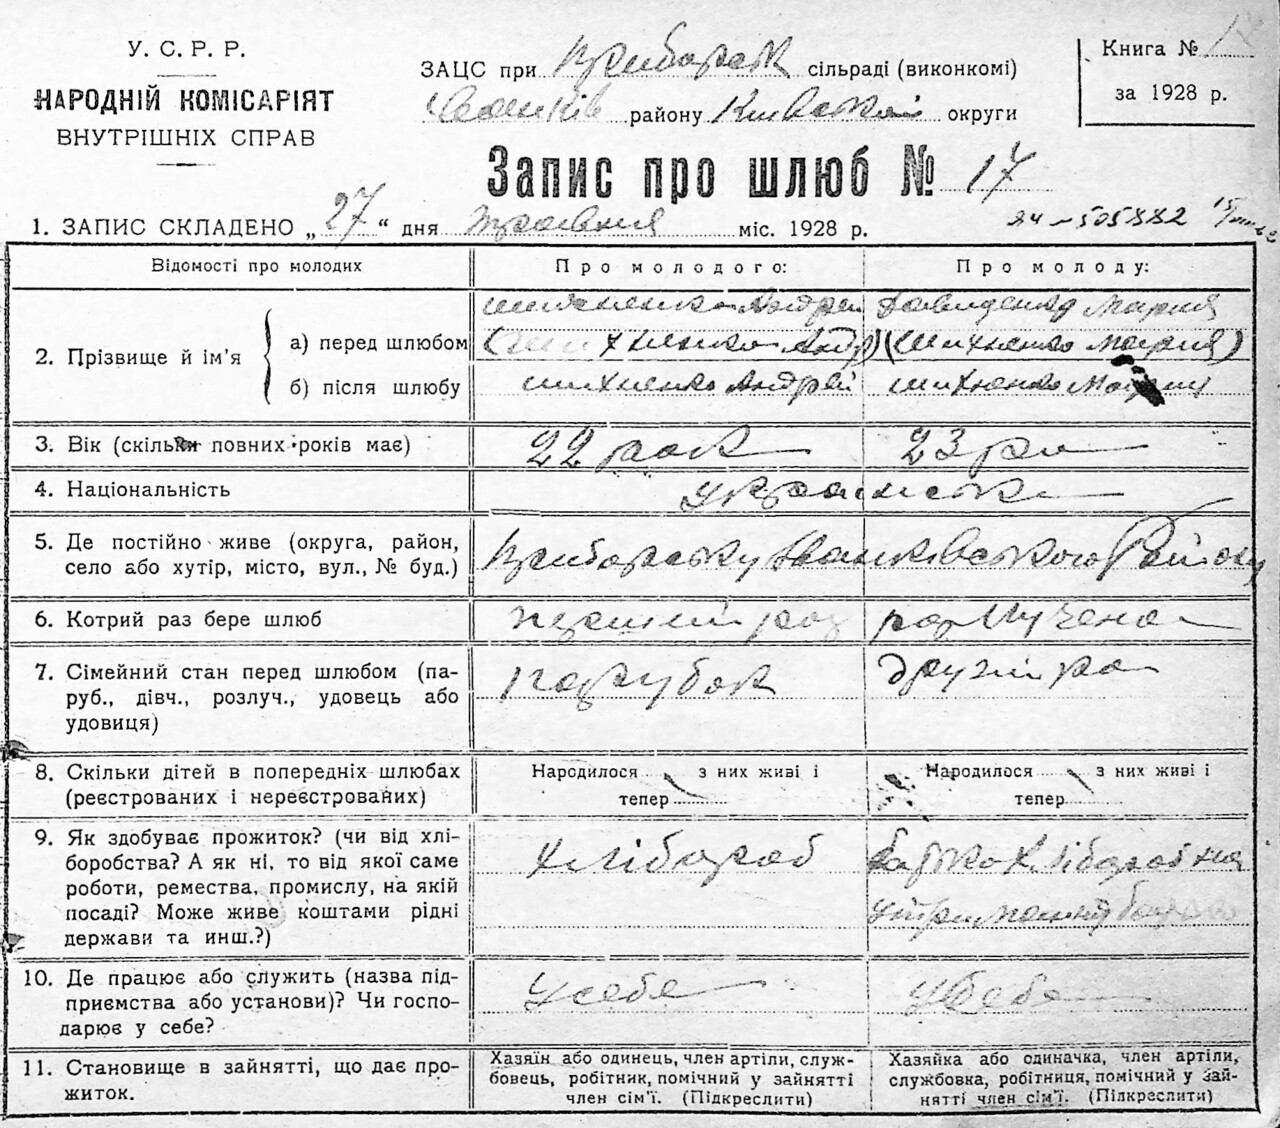 У. С. Р. Р.
НАРОДНІЙ КОМІСАРІЯТ
ВНУТРІШНІХ СПРАВ
ЗАЦС при Прибарськ сільраді (виконкомі)
Іванків району Київської округи
Книга №
за 1928 р.
Запис про шлюб № 17
1. ЗАПИС СКЛАДЕНО „27“ дня травня міс. 1928 р.
Відомості про молодих
Про молодого:
Про молоду:
2. Прізвище й ім’я
а) перед шлюбом
б) після шлюбу
Шихненко Андрей
(Шихненко Андр)
Шихненко Андрей
Давиденко Мария
(Шихненко Мария)
Шихненко Мария
3. Вік (скільки повних років має)
22 рок
23 ро
4. Національність
українська
5. Де постійно живе (округа, район,
село або хутір, місто, вул., № буд.)
Прибарську Іванківського Району
6. Котрий раз бере шлюб
перший раз
розлучена
7. Сімейний стан перед шлюбом (па-
руб., дівч., розлуч., удовець або
удовиця)
парубок
другий раз
8. Скільки дітей в попередніх шлюбах
(реєстрованих і нереєстрованих)
Народилося з них живі і
тепер
Народилося з них живі і
тепер
9. Як здобуває прожиток? (чи від хлі-
боробства? А як ні, то від якої саме
роботи, ремества, промислу, на якій
посаді? Може живе коштами рідні
держави та инш.?)
хлібороб
батько хлібороб на
утриманні
10. Де працює або служить (назва під-
приємства або установи)? Чи госпо-
дарює у себе?
у себе
у себе
11. Становище в зайнятті, що дає про-
житок.
Хазяїн або одинець, член артіли, служ-
бовець, робітник, помічний у зайнятті
член сім’ї. (Підкреслити)
Хазяйка або одиначка, член артіли,
службовка, робітниця, помічний у зай-
нятті член сім’ї. (Підкреслити)